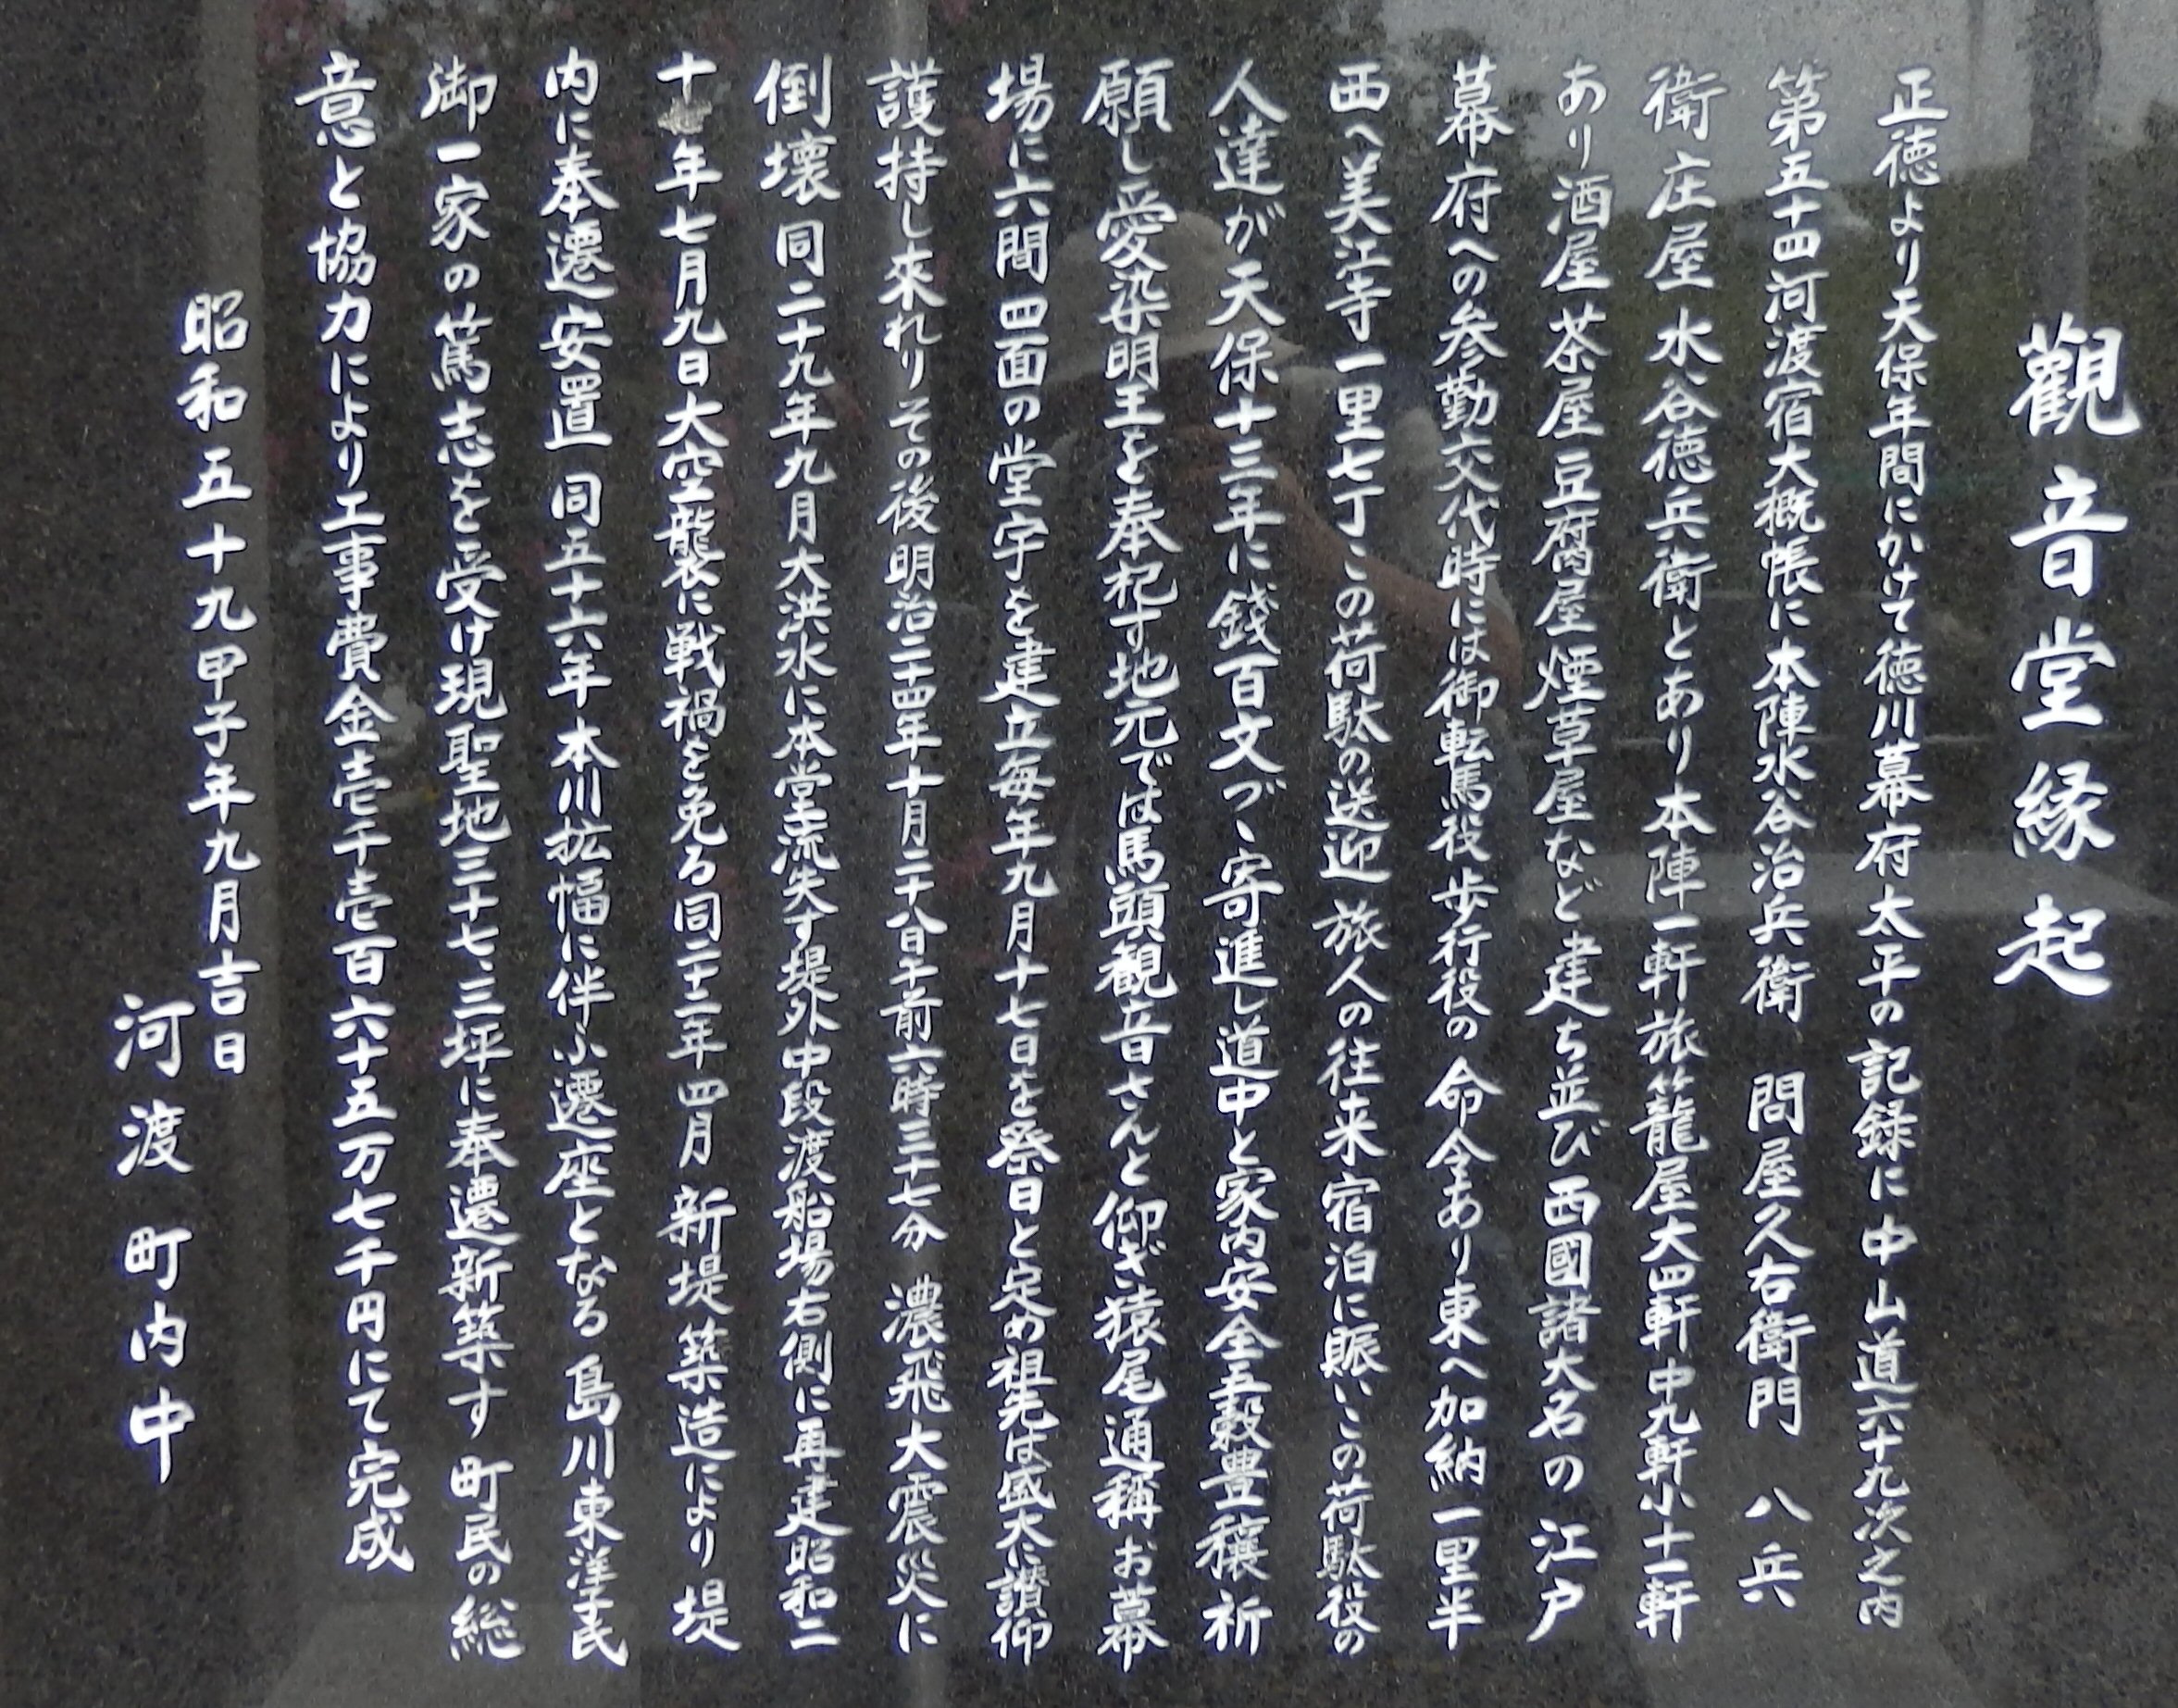 觀音堂縁起
正徳より天保年間にかけて徳川幕府太平の記録に中山道六十九次之内
第五十四河渡宿大概帳に本陣水谷治兵衛 問屋久右衛門 八兵
衛庄屋水谷徳兵衛とあり本陣一軒旅籠屋大四軒中九軒小十一軒
あり酒屋茶屋豆腐屋煙草屋など建ち並び西國諸大名の江戸
幕府への参勤交代時には御転馬役歩行役の命令あり東へ加納一里半
西へ美江寺一里七丁この荷駄の送迎旅人の往来宿泊に賑いこの荷駄役の
人達が天保十三年に錢百文づゝ寄進し道中と家内安全五穀豊穰祈
願し愛染明王を奉祀す地元では馬頭観音さんと仰ぎ猿尾通稱お幕
場に六間四面の堂宇を建立毎年九月十七日を祭日と定め祖先は盛大に讃仰
護持し來れりその後明治二十四年十月二十八日午前六時三十七分 濃飛大震災に
倒壊同二十九年九月大洪水に本堂流失す堤外中段渡船場右側に再建昭和二
十年七月九日大空襲に戦禍を免る同二十二年四月 新堤築造により堤
内に奉遷安置 同五十六年本川拡幅に伴ふ遷座となる 島川東洋氏
御一家の篤志を受け現聖地三十七、三坪に奉遷新築す 町民の総
意と協力により工事費金壱千壱百六十五万七千円にて完成
昭和五十九甲子年九月吉日
河渡町内中